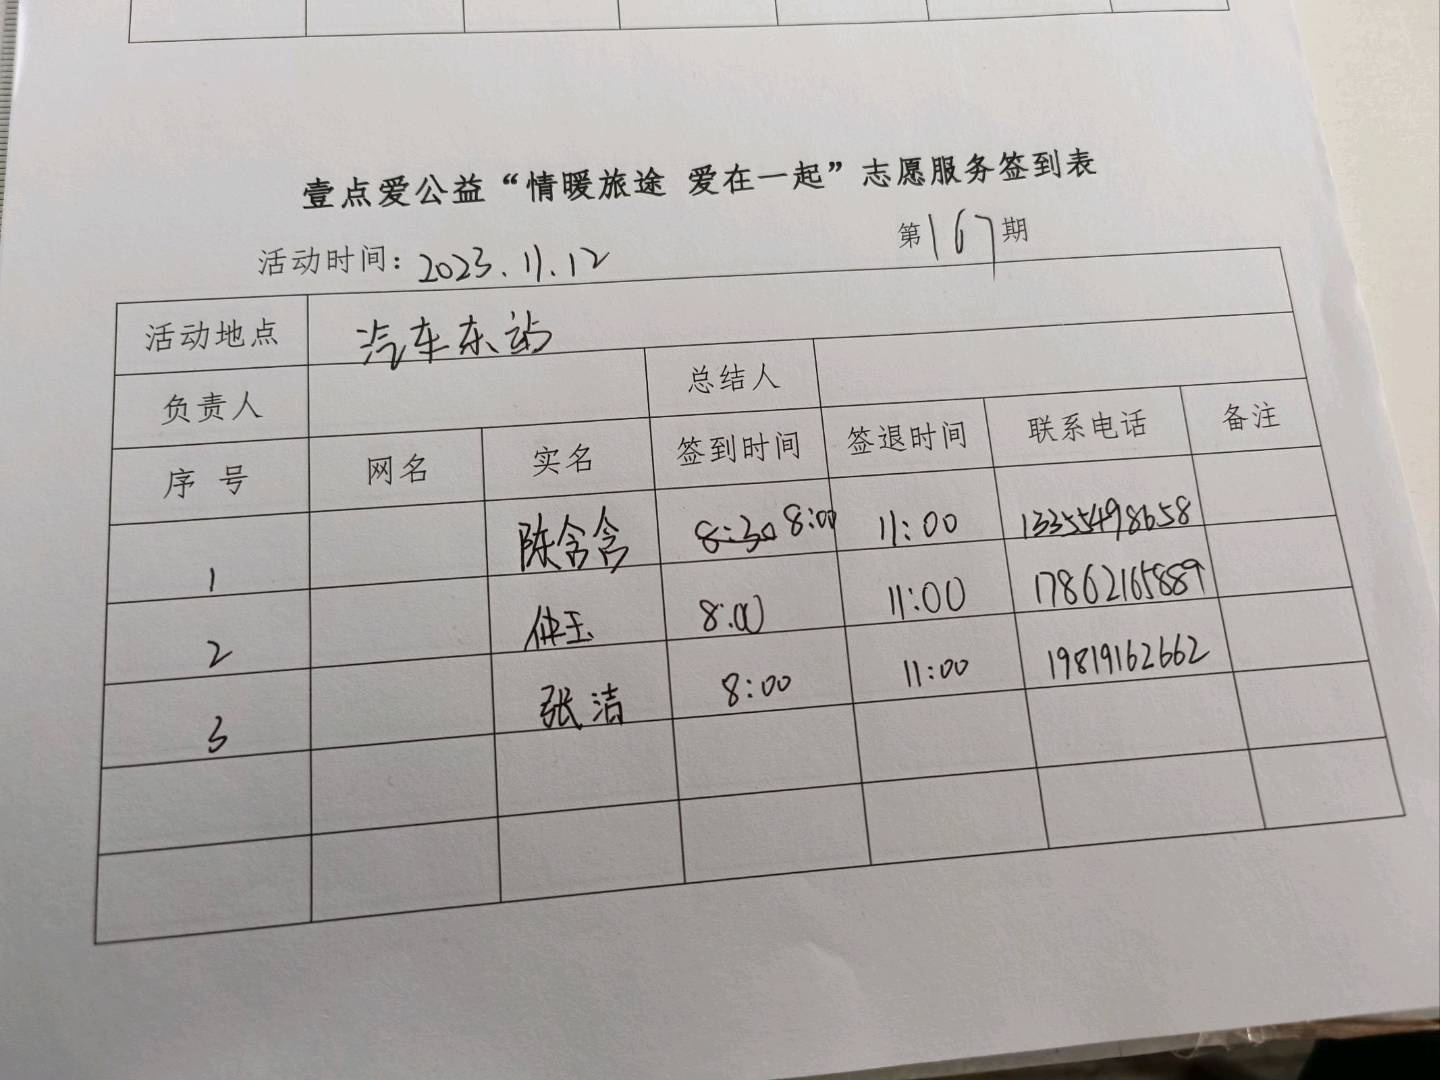 壹点爱公益“情暖旅途 爱在一起”志愿服务签到表
活动时间：2023.11.12 第167期
活动地点 汽车东站
负责人 总结人
序号 网名 实名 签到时间 签退时间 联系电话 备注
1 陈含含 8:30 8:00 11:00 13355498658
2 仲玉 8:00 11:00 17862165889
3 张洁 8:00 11:00 19819162662